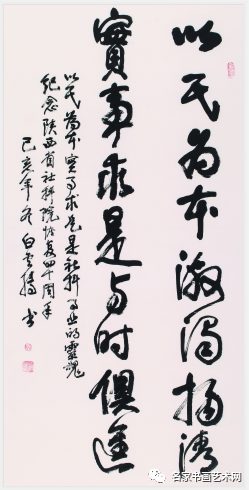 以民为本激浊扬清
實事求是与时俱進
以民為本实事求是是社科事业的靈魂
纪念陕西省社科院恢复四十周年
己亥年冬白云腾书
名家书画艺术网